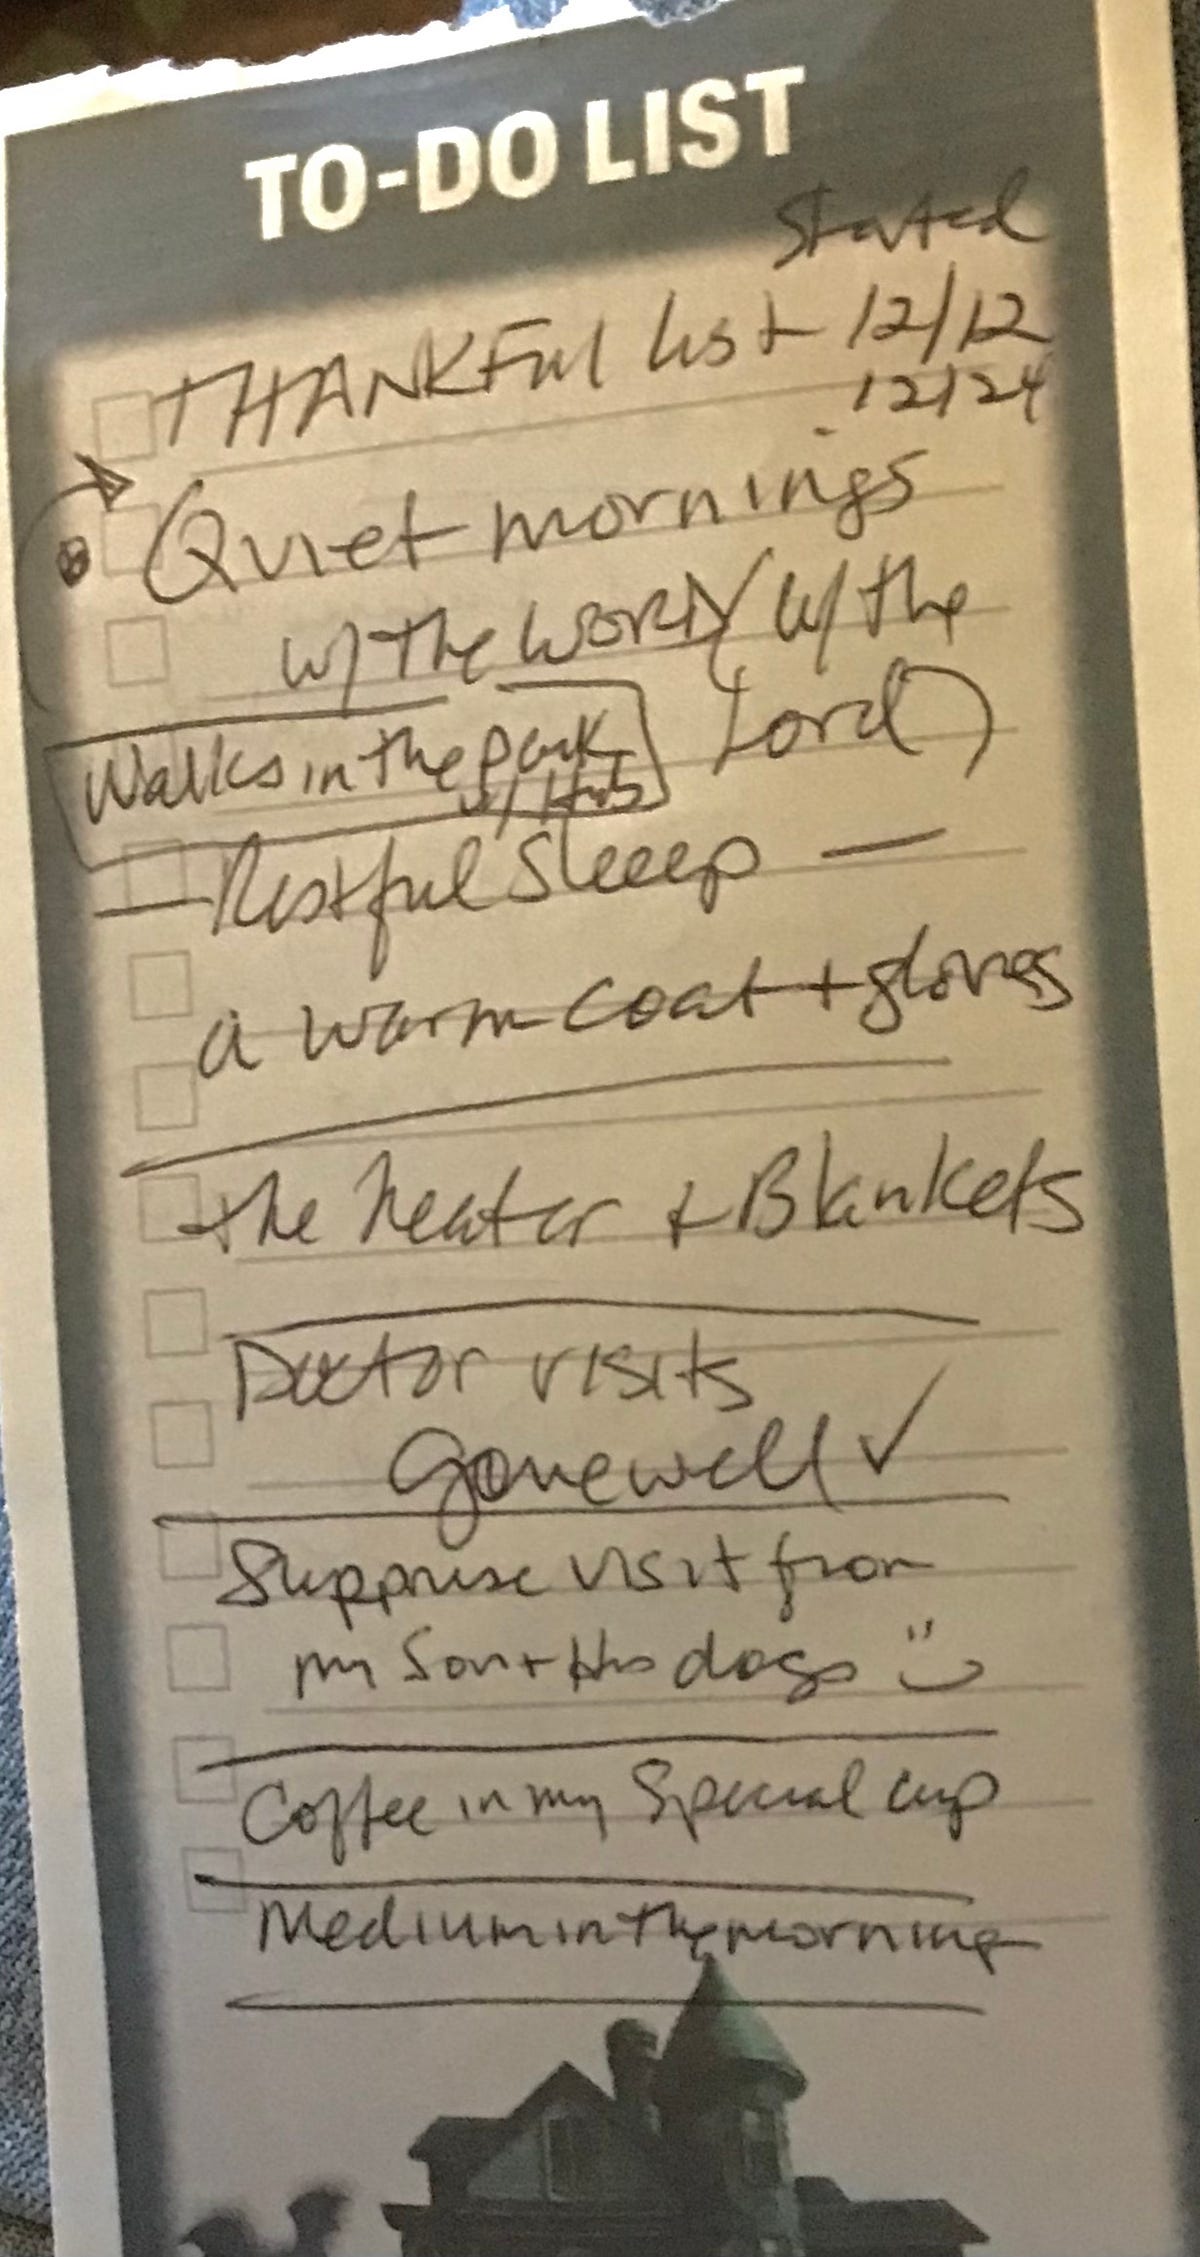 TO-DO LIST
Started
THANKFul list 12/12
12/24
Quiet mornings
w/ the WORD / w/ the
Lord)
Walks in the park
w/ Hub
— Restful Sleeep —
a warm coat + gloves
the heater + Blankets
Doctor visits
Gone well ✓
Supprise visit from
my Son + His dogs
Coffee in my Special cup
Medium in the morning